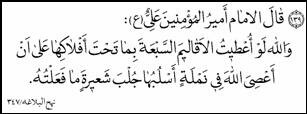 (١٣٩) قالَ الاِمام أَميرُ المُؤمِنينَ عَليٌّ (ع):
وَاللهِ لَوْ أُعْطيتُ الأَقاليمَ السَّبْعَةَ بِما تَحْتَ أَفْلاكِها عَلىٰ اَنْ
أَعْصِيَ اللهَ في نَمْلَةٍ أَسْلُبُها جُلْبَ شَعيرَةٍ ما فَعَلْتُهُ.
نهج البلاغه/٣٤٧